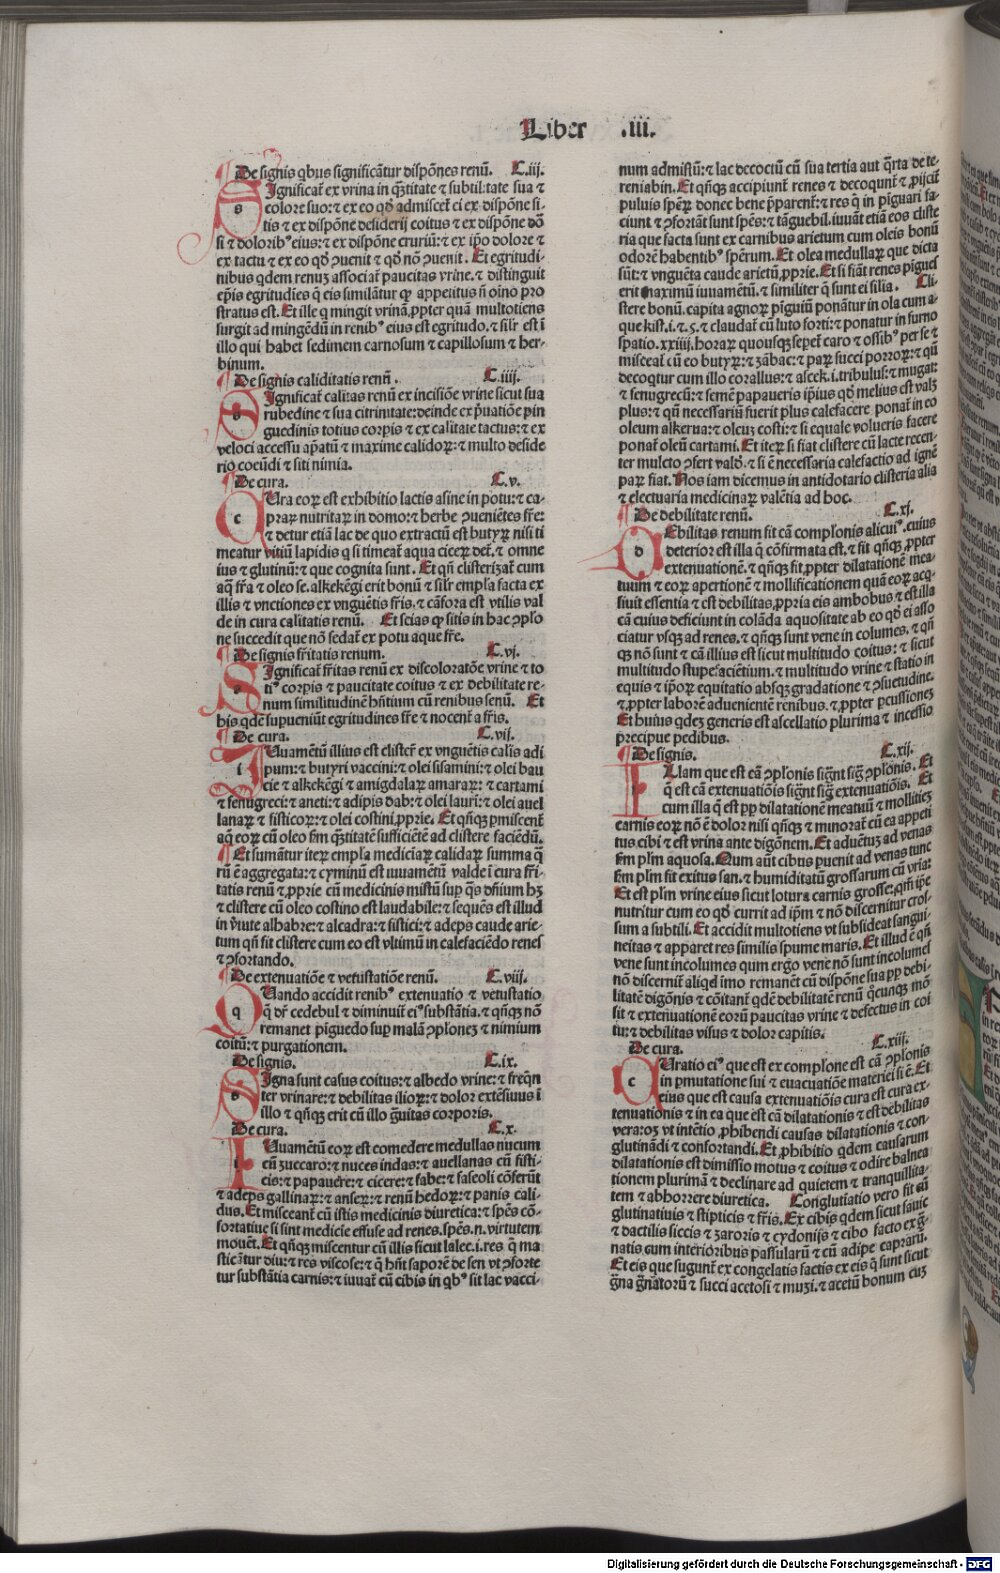 Liber .iii.
De signis qbus significãtur dispõnes renũ. C.iij.
Ignificat᷑ ex vrina in q̃titate ⁊ subtilitate sua ⁊
s colore suo: ⁊ ex eo qď admiscet᷑ ei ex dispõne si
tis ⁊ ex dispõne desiderij coitus ⁊ ex dispõne dõ
si ⁊ dolorib᷒ eius: ⁊ ex dispõne cruriũ: ⁊ ex ip̃o dolore ⁊
ex tactu ⁊ ex eo qď ꝯuenit ⁊ qď nõ ꝯuenit. Et egritudi
nibus qdem renuʒ associat᷑ paucitas vrine. ⁊ distinguit
ep̃is egritudĩes q̃ eis similãtur ꝙ appetitus ñ oĩno pro
stratus est. Et ille q mingit vrinã ꝓpter quã multotiens
surgit ad mingẽdũ in renib᷒ eius est egritudo. ⁊ sil̃r est ĩ
illo qui habet sedimem carnosum ⁊ capillosum ⁊ her-
binum.
De signis caliditatis renũ. C.iiij.
s Ignificat᷑ calitas renũ ex incisiõe vrine sicut sua
rubedine ⁊ sua citrinitate: deinde ex p̃uatiõe pin
guedinis totius corꝑis ⁊ ex calitate tactus: ⁊ ex
veloci accessu ap̃atũ ⁊ maxime calidoꝝ: ⁊ multo deside
rio coeũdi ⁊ siti nimia.
De cura. C.v.
c Vra eoꝝ est exhibitio lactis asine in potu: ⁊ ca-
praꝝ nutritaꝝ in domo: ⁊ herbe ꝯueniẽtes fr̃e:
⁊ detur etiã lac de quo extractũ est butyꝝ nisi ti
meatur vitiũ lapidis q̃ si timeat᷑ aqua ciceꝝ det᷑. ⁊ omne
ius ⁊ glutinũ: ⁊ que cognita sunt. Et qñ clisterizat᷑ cum
aq̃ fr̃a ⁊ oleo se. alkekẽgi erit bonũ ⁊ sil̃r empla facta ex
illis ⁊ vnctiones ex vnguẽtis fr̃is. ⁊ cãfora est vtilis val
de in cura calitatis renũ. Et scias ꝙ sitis in hac ꝯp̃lo
ne succedit que nõ sedat᷑ ex potu aque fr̃e.
De signis fr̃itatis renum. C.vj.
s Ignificat᷑ fr̃itas renũ ex discoloratõe vrine ⁊ to
ti᷒ corꝑis ⁊ paucitate coitus ⁊ ex debilitate re-
num similitudinẽ hñtium cũ renibus senũ. Et
his qdẽ supueniũt egritudines fr̃e ⁊ nocent᷑ a fr̃is.
De cura. C.vij.
i Vuamẽtũ illius est clister᷑ ex vnguẽtis calis adi
pum: ⁊ butyri vaccini: ⁊ olei sisamini: ⁊ olei bau
cie ⁊ alkekẽgi ⁊ amigdalaꝝ amaraꝝ: ⁊ cartami
⁊ fenugreci: ⁊ aneti: ⁊ adipis dab: ⁊ olei lauri: ⁊ olei auel
lanaꝝ ⁊ fisticoꝝ: ⁊ olei costini ꝓprie. Et qñqꝫ pmiscent᷑
aq̃ eoꝝ cũ oleo s̃m q̃titatẽ sufficiẽtẽ ad clistere faciẽdũ.
Et sumãtur iteꝝ empla medicĩaꝝ calidaꝝ summa q̃
rũ ẽ aggregata: ⁊ cyminũ est iuuamẽtũ valde ĩ cura fr̃i-
tatis renũ ⁊ ꝓprie cũ medicinis mistũ sup q̃s dñium hʒ
⁊ clistere cũ oleo costino est laudabile: ⁊ sequẽs est illud
in v̓tute alhabre: ⁊ alcadra: ⁊ fistici: ⁊ adeps caude arie-
tum qñ fit clistere cum eo est vltimũ in calefaciẽdo renes
⁊ ꝯfortando.
De extenuatiõe ⁊ vetustatiõe renũ. C.viij.
q Vando accidit renib᷒ extenuatio ⁊ vetustatio
q̃ dr̃ cedebul ⁊ diminuit᷑ ei᷒ substãtia. ⁊ qñqꝫ nõ
remanet pĩguedo sup malã ꝯplonez ⁊ nimium
coitũ: ⁊ purgationem.
De signis. C.ix.
s Igna sunt casus coitus: ⁊ albedo vrine: ⁊ freq̃n
ter vrinare: ⁊ debilitas ilioꝝ: ⁊ dolor extẽsiuus ĩ
illo ⁊ qñqꝫ erit cũ illo g̃uitas corporis.
De cura. C.x.
i Vuamẽtũ eoꝝ est comedere medullas nucum
cũ zuccaro: ⁊ nuces indas: ⁊ auellanas cũ fisti-
cis: ⁊ papauere: ⁊ cicere: ⁊ fabe: ⁊ faseoli cõferũt
⁊ adeps gallinaꝝ: ⁊ anseꝝ: ⁊ renũ hedoꝝ: ⁊ panis cali-
dus. Et misceant᷑ cũ istis medicinis diuretica: ⁊ sp̃es cõ-
fortatiue si sint medicie effuse ad renes. sp̃es .n. virtutem
mouẽt. Et qñqꝫ miscentur cũ illis sicut lalec .i. res q̃ ma
sticãtur diu: ⁊ res viscose: ⁊ q̃ hñt saporẽ de sen vt ꝯforte
tur substãtia carnis: ⁊ iuuat᷑ cũ cibis in qb᷒ sit lac vacci-
num admistũ: ⁊ lac decoctũ cũ sua tertia aut q̃rta de te-
reniabin. Et qñqꝫ accipiunt᷑ renes ⁊ decoqunt᷑ ⁊ ꝓijcit᷑
puluis spẽꝝ donec bene p̃parent᷑: ⁊ res q̃ in pĩguari fa-
ciunt ⁊ ꝯfortãt sunt spẽs: ⁊ tãguebil. iuuãt etiã eos cliste
ria que facta sunt ex carnibus arietum cum oleis bonũ
odorẽ habentib᷒ spẽrum. Et olea medullaꝝ que dicta
sũt: ⁊ vnguẽta caude arietũ ꝓprie. Et si fiãt renes pĩgues
erit maximũ iuuamẽtũ. ⁊ similiter q̃ sunt ei silia. Cli-
stere bonũ. capita agnoꝝ pĩguiũ ponãtur in ola cum a-
que kist .i. ⁊ .5. ⁊ claudat᷑ cũ luto forti: ⁊ ponatur in furno
spatio .xxiiij. horaꝝ quousqꝫ sepet᷑ caro ⁊ ossib᷒ per se ⁊
misceat᷑ cũ eo butyꝝ: ⁊ zãbac: ⁊ paꝝ succi porroꝝ: ⁊ qñ
decoqtur cum illo corallus: ⁊ ascek .i. tribulus: ⁊ mugat:
⁊ fenugrecũ: ⁊ semẽ papaueris ip̃ius qď melius est valʒ
plus: ⁊ qñ necessariũ fuerit plus calefacere ponat᷑ in eo
oleum alkerua: ⁊ oleuʒ costi: ⁊ si equale volueris facere
ponat᷑ oleũ cartami. Et iteꝝ si fiat clistere cũ lacte recen-
ter mulcto ꝯfert valď. ⁊ si ẽ necessaria calefactio ad ignẽ
paꝝ fiat. Nos iam dicemus in antidotario clisteria alia
⁊ electuaria medicinaꝝ valẽtia ad hoc.
De debilitate renũ. C.xj.
d Ebilitas renum fit cã complonis alicui᷒. cuius
deterior est illa q̃ cõfirmata est. ⁊ fit qñqꝫ ꝓpter
extenuationẽ. ⁊ qñqꝫ fit ꝓpter dilatationẽ mea
tuum ⁊ eoꝝ apertionẽ ⁊ mollificationem quã eoꝝ acq̃
siuit essentia ⁊ est debilitas ꝓpria eis ambobus ⁊ est illa
cã cuius deficiunt in colãda aquositate ab eo qď ei asso
ciatur vsqꝫ ad renes. ⁊ qñqꝫ sunt vene in columes. ⁊ qñ
qꝫ nõ sunt ⁊ cã illius est sicut multitudo coitus: ⁊ sicut
multitudo stupefacietium. ⁊ multitudo vrine ⁊ statio in
equis ⁊ ip̃oꝝ equitatio absqꝫ gradatione ⁊ ꝯsuetudine.
⁊ ꝓpter laborẽ aduenientẽ renibus. ⁊ ꝓpter pcussionez
Et huius qdeʒ generis est ascellatio plurima ⁊ incessio
precipue pedibus.
De signis. C.xij.
I Llam que est cã ꝯplonis sig̃nt sig̃ ꝯplonis. Et
q̃ est cã extenuatiõis sig̃nt sig̃ extenuatiõis. Et
cum illa q̃ est pp̃ dilatationẽ meatuũ ⁊ mollitieʒ
carnis eoꝝ nõ ẽ dolor nisi qñqꝫ ⁊ minorat᷑ cũ ea appeti
tus cibi ⁊ est vrina ante digõnem. Et aduẽtuʒ ad venas
s̃m pl̃m aquosa. Qum aũt cibus puenit ad venas tunc
s̃m pl̃m fit exitus san. ⁊ humiditatũ grossarum cũ vria:
Et est pl̃m vrine eius sicut lotura carnis grosse: qm̃ ip̃e
nutritur cum eo qď currit ad ip̃m ⁊ nõ discernitur gros-
sum a subtili. Et accidit multotiens vt subsideat sangui-
neitas ⁊ apparet res similis spume maris. Et illud ẽ qñ
vene sunt incolumes qum ergo vene nõ sunt incolumes
nõ discernit᷑ aliqd imo remanet cũ dispõne sua pp̃ debi-
litatẽ digõnis ⁊ cõitant᷑ qdẽ debilitatẽ renũ q̃cunqꝫ mõ
sit ⁊ extenuationẽ eorũ paucitas vrine ⁊ defectus in coi
tu: ⁊ debilitas visus ⁊ dolor capitis.
De cura. C.xiij.
c Vratio ei᷒ que est ex complone est cã ꝯplonis
in pmutatione sui ⁊ euacuatiõe materiei si ẽ. Et
eius que est causa extenuatiõis cura est cura ex-
tenuationis ⁊ in ea que est cã dilatationis ⁊ est debilitas
vera: oʒ vt intẽtio ꝓhibendi causas dilatationis ⁊ con-
glutinãdi ⁊ confortandi. Et ꝓhibitio qdem causarum
dilatationis est dimissio motus ⁊ coitus ⁊ odire balnea
tionem plurimã ⁊ declinare ad quietem ⁊ tranquillita-
tem ⁊ abhorrere diuretica. Conglutiatio vero fit cũ
glutinatiuis ⁊ stipticis ⁊ fr̃is. Ex cibis qdem sicut sauic
⁊ dactilis siccis ⁊ zaroris ⁊ cydonijs ⁊ cibo facto ex g̃-
natis cum interioribus passularũ ⁊ cũ adipe capraꝝ.
Et eis que sugunt᷑ ex congelatis factis ex eis q̃ sunt sicut
g̃na g̃natorũ ⁊ succi acetosi ⁊ muzi. ⁊ acetũ bonum cuʒ
Digitalisierung gefördert durch die Deutsche Forschungsgemeinschaft - DFG